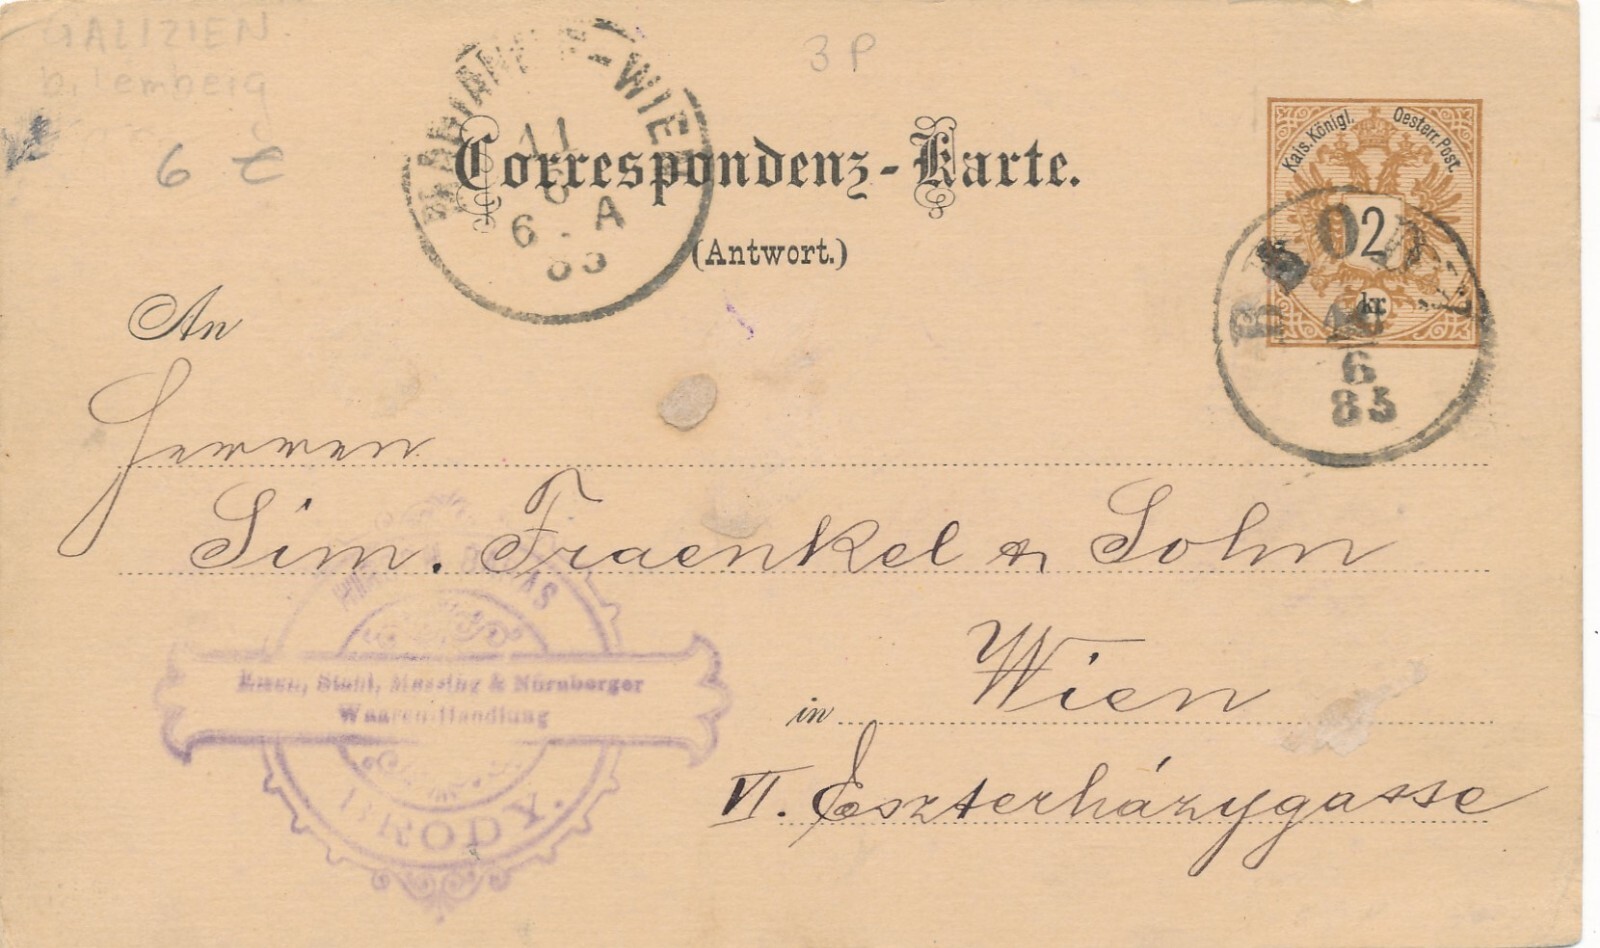 GALIZIEN
b. Lemberg
6 €
3 P
-WIEN
11
6
6 . A
85
Correspondenz-Karte.
(Antwort.)
Kais. Königl. Oesterr. Post.
2
kr.
BRODY
10
6
85
An
Herren
Sim. Fraenkel & Sohn
in Wien
VI. Eszterházygasse
Eisen, Stahl, Messing & Nürnberger
Waaren-Handlung
BRODY.